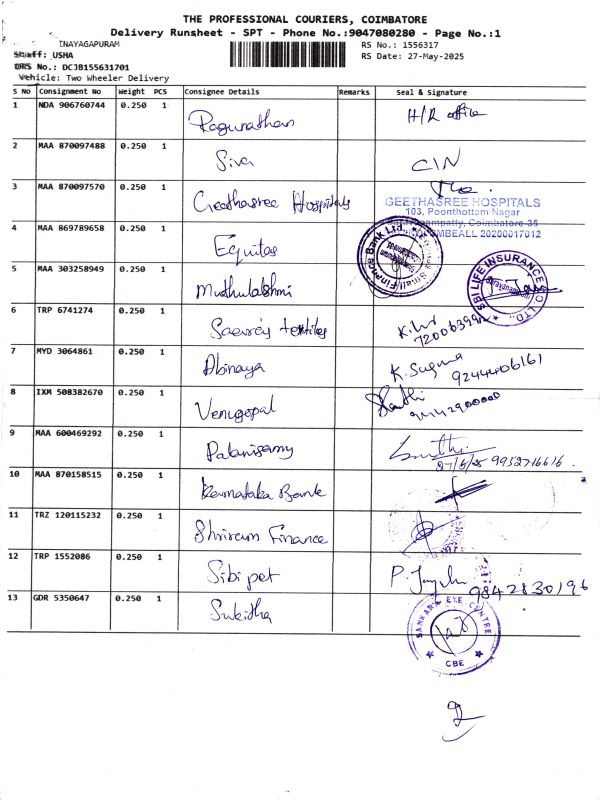 THE PROFESSIONAL COURIERS, COIMBATORE
Delivery Runsheet - SPT - Phone No.:9047080280 - Page No.:1
INAYAGAPURAM
RS No.: 1556317
Staff: USHA
RS Date: 27-May-2025
DRS No.: DC3B155631701
Vehicle: Two Wheeler Delivery
S No Consignment No Weight PCS Consignee Details Remarks Seal & Signature
1 NDA 906760744 0.250 1 Ragunathan H/R office
2 MAA 870097488 0.250 1 Siva CIN
3 MAA 870097570 0.250 1 Geethasree Hospitals
GEETHASREE HOSPITALS
103, Poonthottam Nagar
Coimbatore-35
20200017012
4 MAA 869789658 0.250 1 Equitas
Small Finance Bank Ltd.
5 MAA 303258949 0.250 1 Muthulakshmi
SBI LIFE INSURANCE CO. LTD.
6 TRP 6741274 0.250 1 Saravás textiles
7 MYD 3064861 0.250 1 Abinaya K. Suguna
9244406161
8 IXM 508382670 0.250 1 Venugopal
9 MAA 600469292 0.250 1 Palanisamy
27/5/25 9952716616
10 MAA 870158515 0.250 1 Karnataka Bank
11 TRZ 120115232 0.250 1 Shriram Finance
12 TRP 1552086 0.250 1 Sibi pet P.
9842830196
13 GDR 5350647 0.250 1 Sukitha
SANKARA EYE CENTRE
CBE